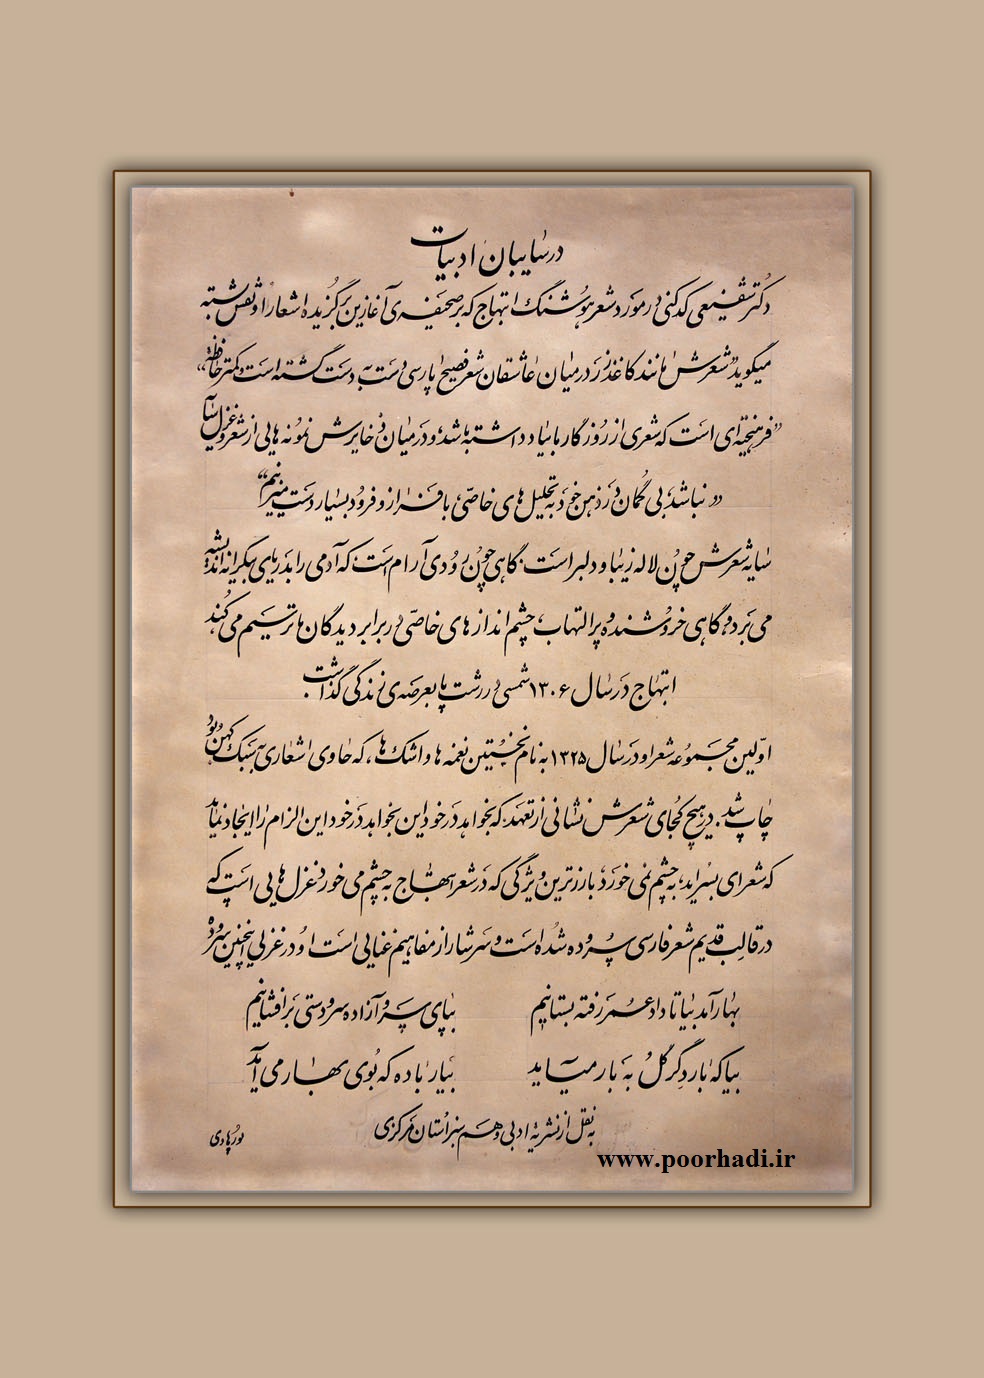 در سایبان ادبیات
دکتر شفیعی کدکنی در مورد شعر هوشنگ ابتهاج که بر صحیفه‌ی آغازین برگزیده اشعار او نقش بسته
میگوید «شعرش مانند کاغذ زر در میان عاشقان شعر فصیح پارسی دست به دست گشته است و کمتر حافظه»
«فرهیخته‌ای است که شعری از روزگار ما بیاد داشته باشد و در میان ذخایرش نمونه هایی از شعر و غزل سایه
« نباشد، بی گمان در ذهن خود به تحلیل های خاصی با فراز و فرود بسیار دست میزنیم»
سایه شعرش چون لاله زیبا و دلبر است. گاهی چون رودی آرام است که آدمی را بدریای بیکرانه اندیشه
می برد و گاهی خروشنده و پر التهاب، چشم اندازهای خاصی در برابر دیدگان ما ترسیم می کند
ابتهاج در سال ۱۳۰۶ شمسی در رشت پا بعرصه‌ی زندگی گذاشت
اولین مجموعه شعر او در سال ۱۳۲۵ به نام نخستین نغمه ها و اشک ها، که حاوی اشعاری به سبک کهن بود
چاپ شد. در هیچ کجای شعرش نشانی از تعهد که بخواهد در خود این بخواهد در خود این الزام را ایجاد نماید
که شعرای بسراید، به چشم نمی خورد، بارزترین ویژگی که در شعر ابتهاج به چشم می خورد غزل هایی است که
در قالب قدیم شعر فارسی سروده شده است و سرشار از مفاهیم غنایی است او در غزلی اینچنین سروده
بهار آمد بیا تا داد عمر رفته بستانیم بپای سرو آزاده سر و دستی برافشانیم
بیا که بار دگر گل به بار میآید بیار باده که بوی بهار می آید
به نقل از نشریه ادبی و هنر استان مرکزی
پورهادی
www.poorhadi.ir